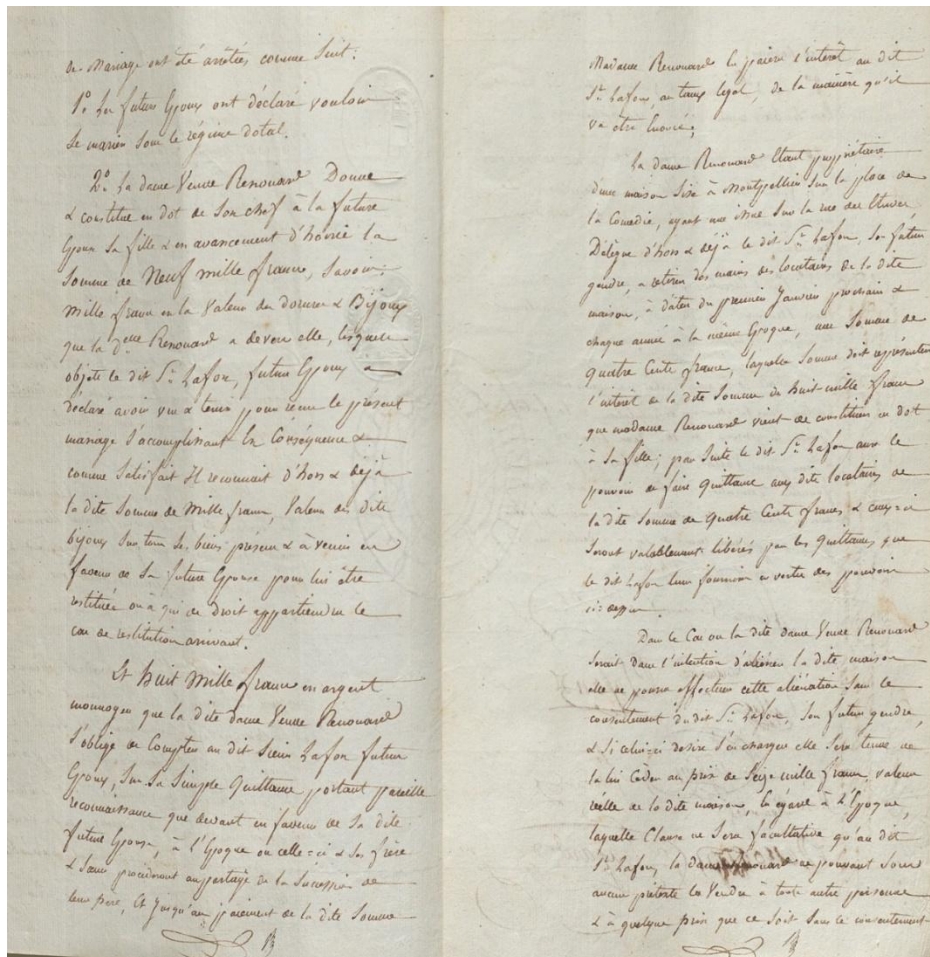 de Mariage ont été arrêtées comme suit:
1º Les futurs Epoux ont déclaré vouloir
se marier sous le régime dotal.
2º La dame Veuve Renouard Donne
& constitue en dot de son chef à la future
Epouse sa fille & en avancement d'hoirie la
somme de Neuf mille francs, savoir:
Mille francs en la valeur des dorures & Bijoux
que la dlle Renouard a devers elle, lesquels
objets le dit Sr Lafon, futur Epoux a
déclaré avoir vus & tenir pour reçus le présent
mariage s'accomplissant En Conséquence &
comme satisfait Il reconnait d'hors & déjà
la dite somme de Mille francs, valeur des dits
bijoux sur tous ses biens présens & à venir en
faveur de sa future Epouse pour lui être
restituée ou à qui de droit appartiendra le
cas de restitution arrivant.
Et huit Mille francs en argent
monnoyé que la dite dame Veuve Renouard
s'oblige de Compter au dit Sieur Lafon futur
Epoux, sur sa simple Quittance portant pareille
reconnaissance que devant en faveur de sa dite
future Epouse, à l'Epoque ou celle-ci & ses frère
& sœur procèderont au partage de la Succession de
leur père, Et jusqu'au paiement de la dite somme
Madame Renouard en paiera l'intérêt au dit
Sr Lafon, au taux légal, de la manière qu'il
va être énoncé;
La dame Renouard Etant propriétaire
d'une maison sise à Montpellier sur la place de
la Comédie, ayant une issue sur la rue des
Délègue d'hors & déjà le dit Sr Lafon, son futur
gendre, a retirer des mains des locataires de la dite
maison, à dater du premier Janvier prochain &
chaque année à la même Epoque, une somme de
quatre Cents francs, laquelle somme doit représenter
l'intérêt de la dite somme de huit mille francs
que madame Renouard vient de constituer en dot
à sa fille; par suite le dit Sr Lafon aura le
pouvoir de faire Quittance aux dits locataires de
la dite somme de quatre Cents francs & ceux-ci
seront valablement libérés par les Quittances que
le dit Lafon leur fournira en vertu des pouvoirs
ci-dessus
Dans le Cas ou la dite dame Veuve Renouard
serait dans l'intention d'aliéner la dite maison
elle ne pourra effectuer cette aliénation sans le
consentement du dit Sr Lafon, son futur gendre,
& si celui-ci desire s'en charger elle sera tenue de
la lui Céder au prix de Seize mille francs, valeur
réelle de la dite maison, à l'Epoque,
laquelle Clause ne sera facultative qu'au dit
Sr Lafon, la dame Renouard ne pouvant sous
aucun prétexte la Vendre à toute autre personne
& à quelque prix que ce soit sans le consentement